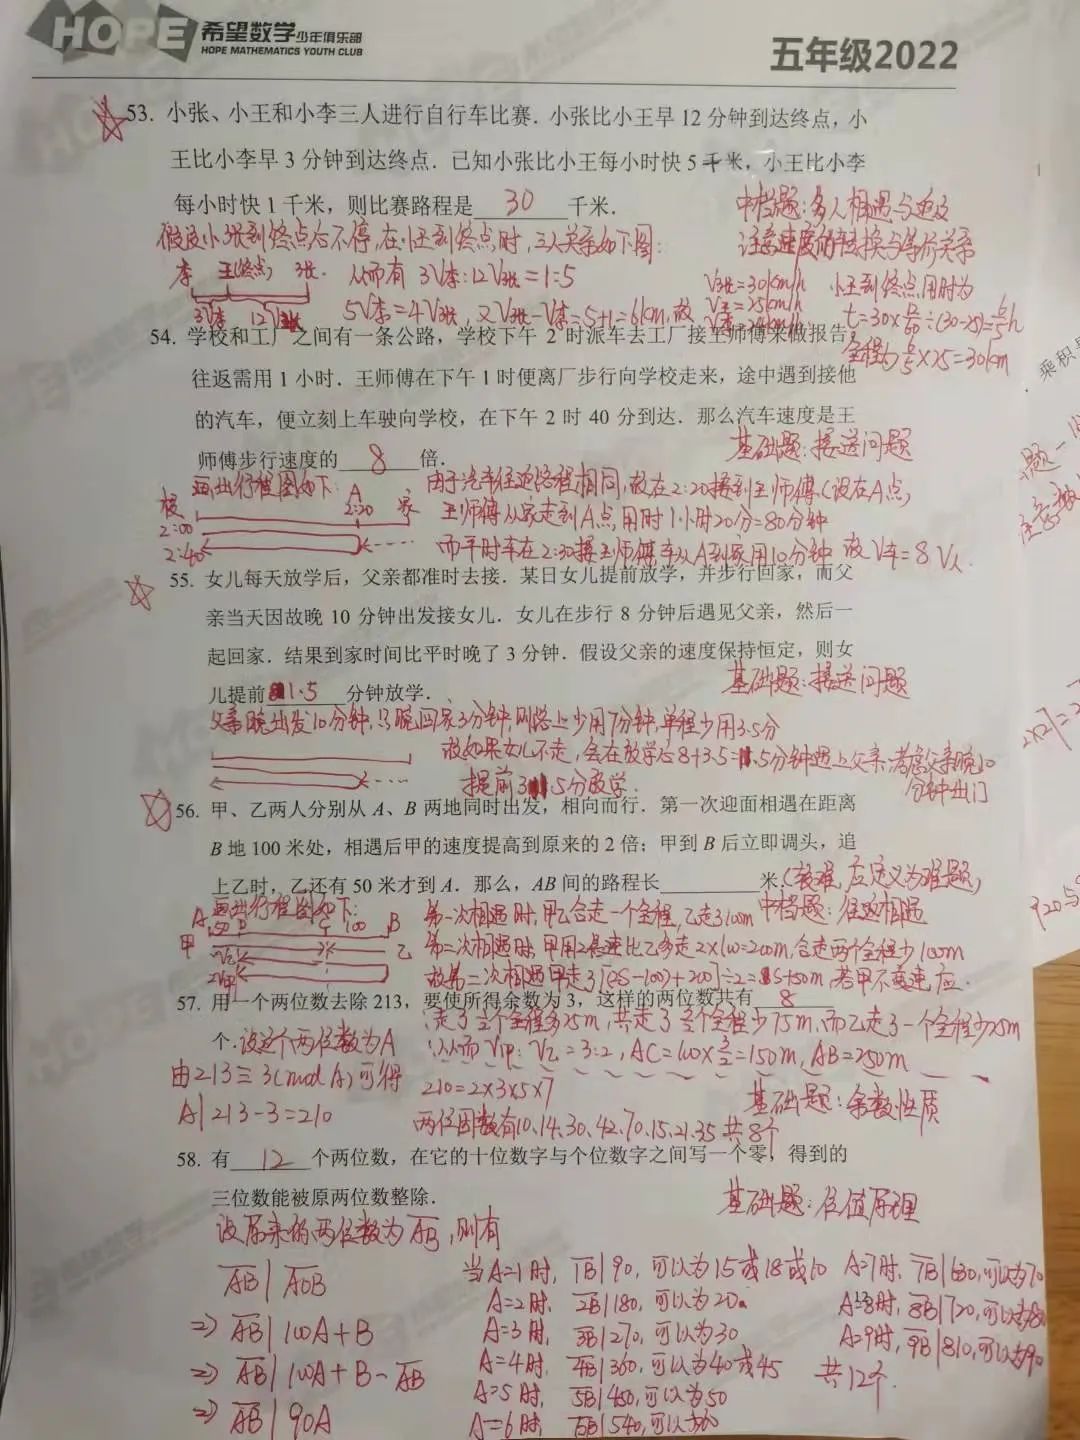 HOPE 希望数学少年俱乐部
HOPE MATHEMATICS YOUTH CLUB
五年级2022
53. 小张、小王和小李三人进行自行车比赛．小张比小王早 12 分钟到达终点，小
王比小李早 3 分钟到达终点．已知小张比小王每小时快 5 千米，小王比小李
每小时快 1 千米，则比赛路程是 30 千米．
中档题：多人相遇与追及
假设小张到终点后不停，在小王到终点时，三人关系如下图：
注意速度的转换与等价关系
李 王(终点) 张
从而有 3V李：12V张＝1：5
V张＝30km/h
V王＝25km/h
V李＝24km/h
小王到终点用时为
3V李 12V张
5V李＝4V张，又V张－V李＝5+1＝6km，故
t＝30×12/60÷(30-25)＝6/5h
全程为 6/5×25＝30km
54. 学校和工厂之间有一条公路，学校下午 2 时派车去工厂接王师傅来做报告，
往返需用 1 小时．王师傅在下午 1 时便离厂步行向学校走来，途中遇到接他
的汽车，便立刻上车驶向学校，在下午 2 时 40 分到达．那么汽车速度是王
师傅步行速度的 8 倍．
基础题：接送问题
画出行程图如下：
由于汽车往返路程相同，故在2:20接到王师傅(设在A点)
校 A 2:20 家
王师傅从家走到A点，用时1小时20分＝80分钟
2:00
2:40
而平时车在2:30接王师傅 车从A到家用10分钟 故V车＝8V人
55. 女儿每天放学后，父亲都准时去接．某日女儿提前放学，并步行回家，而父
亲当天因故晚 10 分钟出发接女儿．女儿在步行 8 分钟后遇见父亲，然后一
起回家．结果到家时间比平时晚了 3 分钟．假设父亲的速度保持恒定，则女
儿提前 1.5 分钟放学．
基础题：接送问题
父亲晚出发10分钟，只晚回家3分钟，则路上少用7分钟，单程少用3.5分
故如果女儿不走，会在放学后8+3.5＝11.5分钟遇上父亲，考虑父亲晚10
分钟出门
提前1.5分放学．
56. 甲、乙两人分别从 A、B 两地同时出发，相向而行．第一次迎面相遇在距离
B 地 100 米处，相遇后甲的速度提高到原来的 2 倍；甲到 B 后立即调头，追
上乙时，乙还有 50 米才到 A．那么，AB 间的路程长 米．
(较难，应定义为难题)
画出行程图如下：
中档题：往返相遇
A 50 D C 100 B
甲 乙
第一次相遇时，甲乙合走一个全程，乙走了100m
第二次相遇时，甲用2倍速比乙多走2×100＝200m，合走两个全程少100m
故第二次相遇甲走了[(2S-100)+200]÷2＝S+50m，若甲不变速，应
走了半个全程多25m，共走了 个全程少75m，而乙走了一个全程少 m
从而V甲：V乙＝3：2，AC＝100×3/2＝150m，AB＝250m
57. 用一个两位数去除 213，要使所得余数为 3，这样的两位数共有 8
个．
设这个两位数为A
由213≡3(mod A)可得
A|213-3＝210
210＝2×3×5×7
基础题：余数性质
两位因数有10、14、30、42、70、15、21、35 共8个
58. 有 12 个两位数，在它的十位数字与个位数字之间写一个零，得到的
三位数能被原两位数整除．
基础题：位值原理
设原来的两位数为AB，则有
AB|A0B
⇒ AB|100A+B
⇒ AB|100A+B-AB
⇒ AB|90A
当A＝1时，1B|90，可以为15或18或10
A＝2时，2B|180，可以为20
A＝3时，3B|270，可以为30
A＝4时，4B|360，可以为40或45
A＝5时，5B|450，可以为50
A＝6时，6B|540，可以为60
A＝7时，7B|630，可以为70
A＝8时，8B|720，可以为80
A＝9时，9B|810，可以为90
共12个．
乘积是